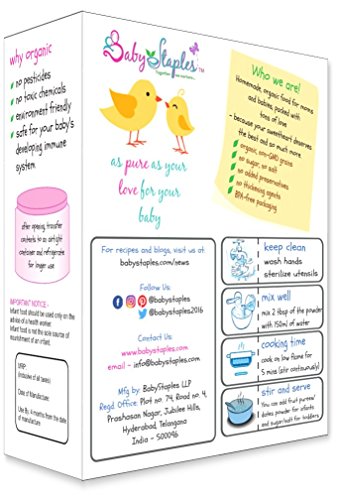 why organic
no pesticides
no toxic chemicals
environment friendly
safe for your baby's
developing immune
system
after opening, transfer
contents to an airtight
container and refrigerate
for longer use
IMPORTANT NOTICE -
Infant food should be used only on the
advice of a health worker.
Infant food is not the sole source of
nourishment of an infant.
MRP
(Inclusive of all taxes)
Date of Manufacture:
Use By: 6 months from the date
of manufacture
Baby Staples™
Together we nurture...
as pure as your
love for your
baby
Who we are!
Homemade, organic food for moms
and babies, packed with
tons of love
- because your sweetheart deserves
the best and so much more
organic, non-GMO grains
no sugar, no salt
no added preservatives
no thickening agents
BPA-free packaging
For recipes and blogs, visit us at
babystaples.com/news
Follow Us:
@babystaples
@babystaples2016
Contact Us:
www.babystaples.com
email - info@babystaples.com
Mfg by: BabyStaples LLP
Regd Office: Plot no. 74, Road no. 4,
Prashasan Nagar, Jubilee Hills,
Hyderabad, Telangana
India - 500096
keep clean
wash hands
sterilize utensils
mix well
mix 2 tbsp of the powder
with 150ml of water
cooking time
cook on low flame for
5 mins (stir continuously)
stir and serve
You can add fruit puree/
dates powder for infants
and sugar/salt for toddlers